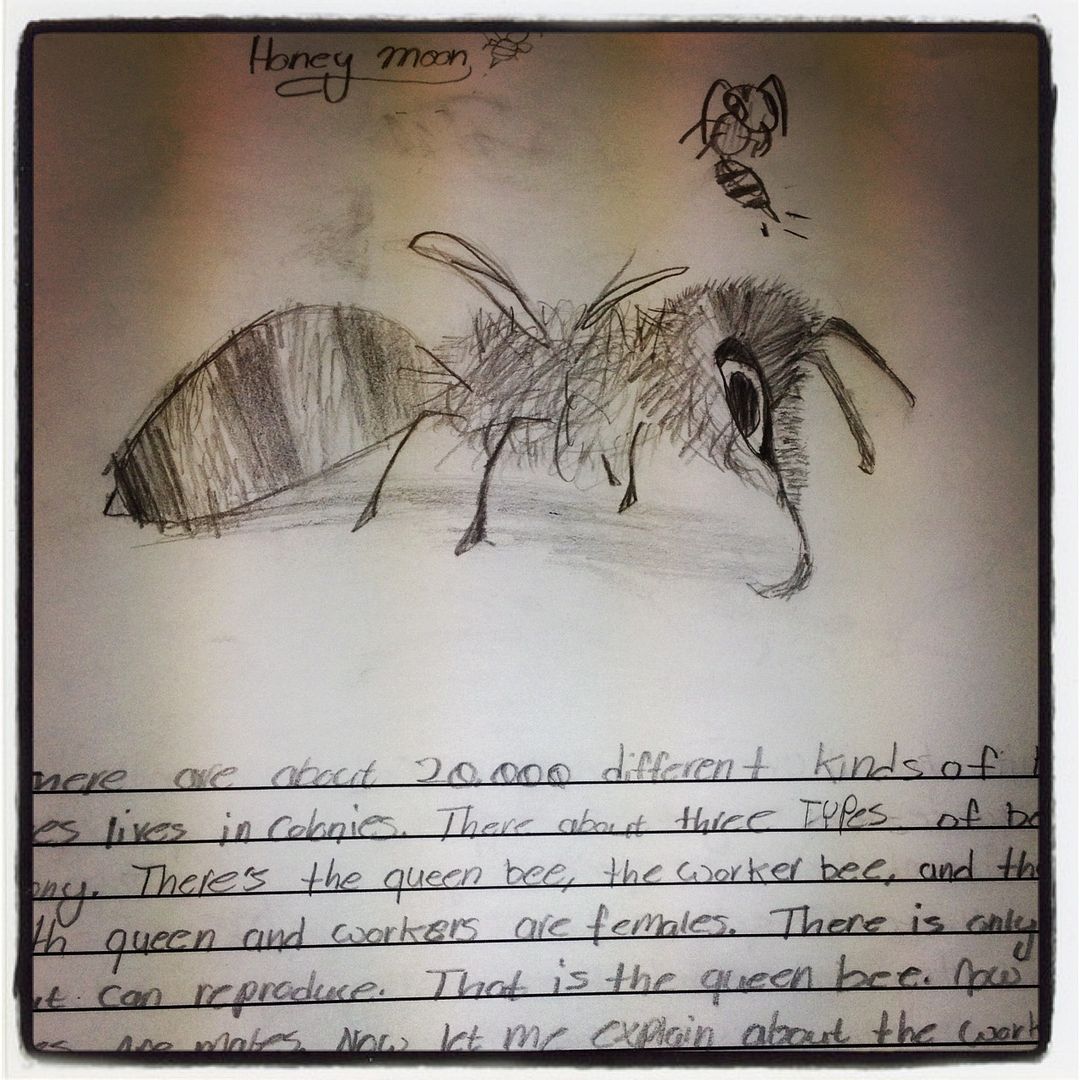 Honey moon
here are about 20,000 different kinds of
es lives in colonies. There about three Types of be
ony. There's the queen bee, the worker bee, and the
th queen and workers are females. There is only
ut can reproduce. That is the queen bee. Now
es are males. Now let me explain about the work